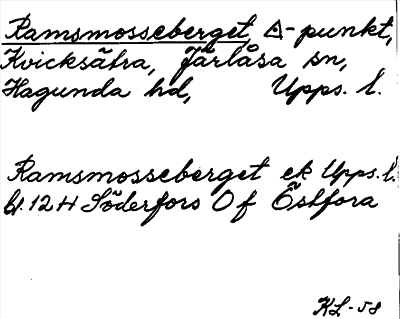 Ramsmosseberget, △-punkt,
Kvicksätra, Järlåsa sn,
Hagunda hd, Upps. l.
Ramsmosseberget ek Upps. l.
bl. 12 H Söderfors O f Östfora
KL-58